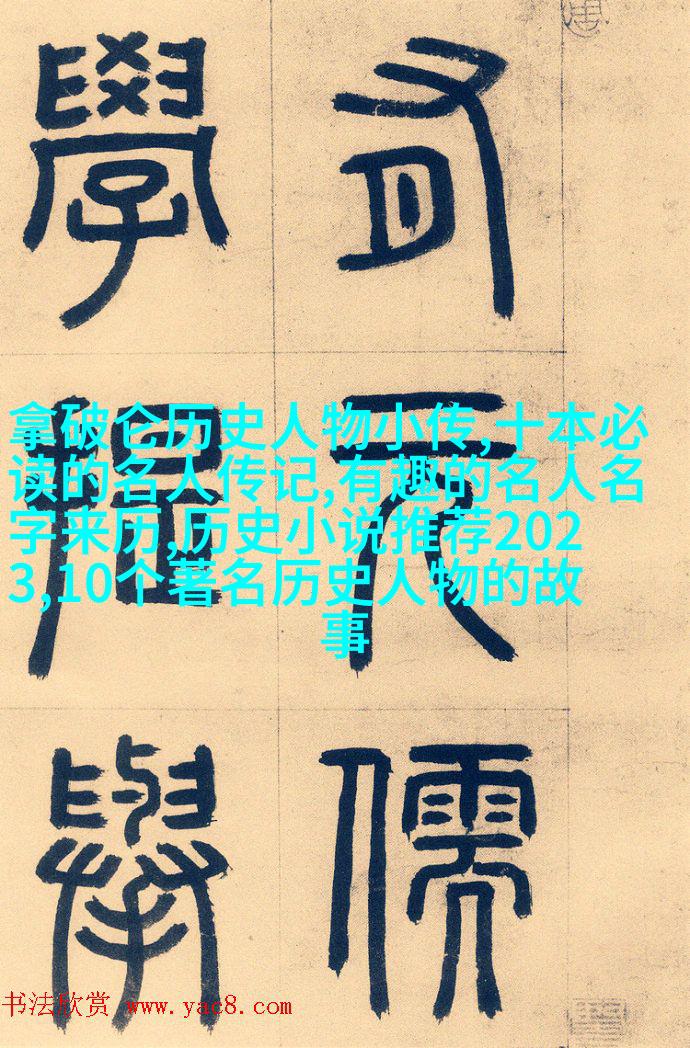 有元儒
學提舉
拿破仑历史人物小传,十本必
读的名人传记,有趣的名人名
字来历,历史小说推荐202
3,10个著名历史人物的故
事
书法欣赏 www.yac8.com